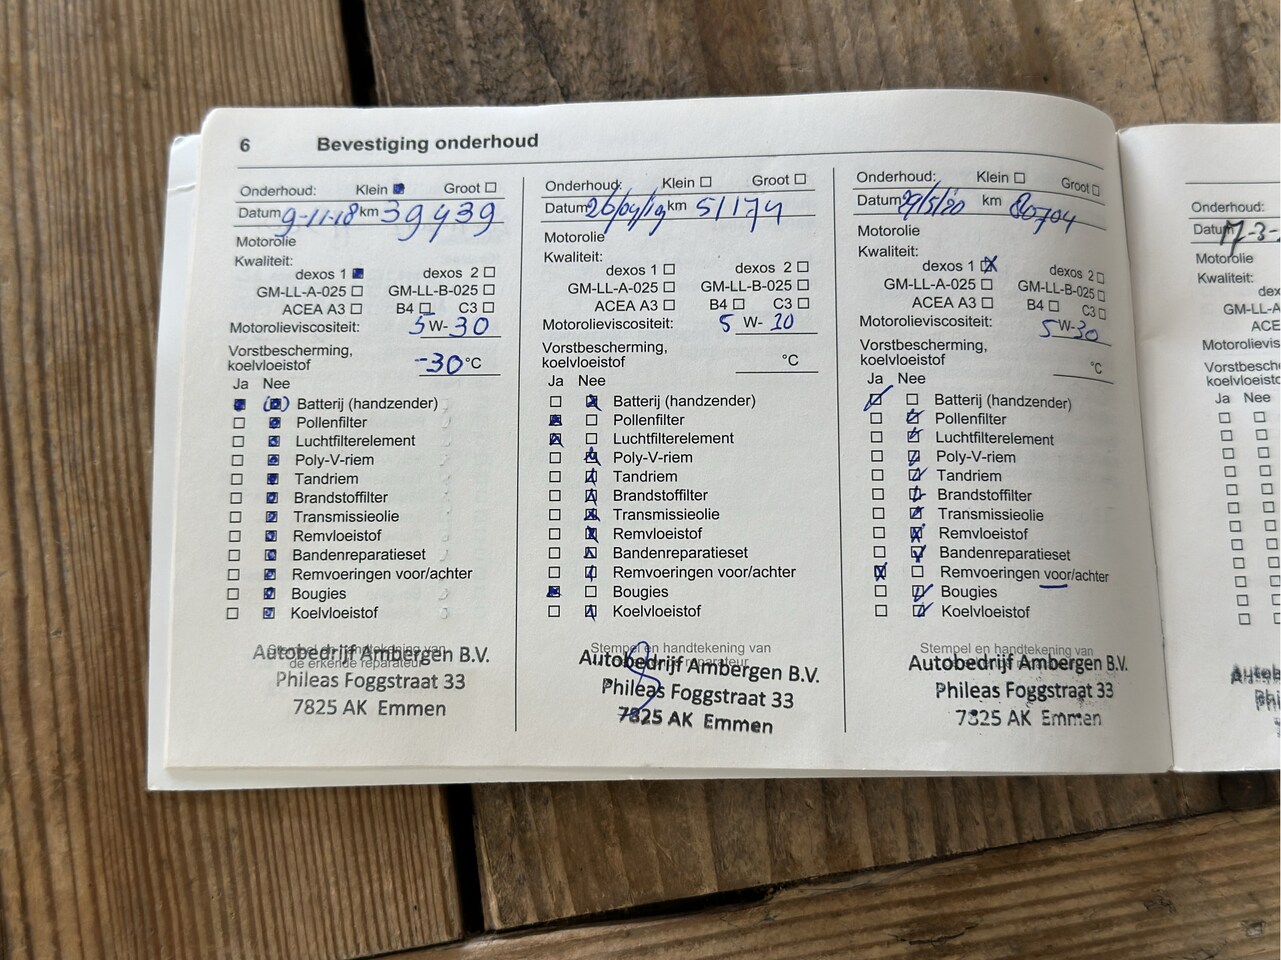 6 Bevestiging onderhoud
Onderhoud: Klein Groot
Datum 9-11-18 km 39439
Motorolie
Kwaliteit:
dexos 1 dexos 2
GM-LL-A-025 GM-LL-B-025
ACEA A3 B4 C3
Motorolieviscositeit: 5 W- 30
Vorstbescherming,
koelvloeistof -30 °C
Ja Nee
Batterij (handzender)
Pollenfilter
Luchtfilterelement
Poly-V-riem
Tandriem
Brandstoffilter
Transmissieolie
Remvloeistof
Bandenreparatieset
Remvoeringen voor/achter
Bougies
Koelvloeistof
Stempel en handtekening van
de erkende reparateur
Autobedrijf Ambergen B.V.
Phileas Foggstraat 33
7825 AK Emmen
Onderhoud: Klein Groot
Datum 26/04/19 km 51174
Motorolie
Kwaliteit:
dexos 1 dexos 2
GM-LL-A-025 GM-LL-B-025
ACEA A3 B4 C3
Motorolieviscositeit: 5 W-
Vorstbescherming,
koelvloeistof °C
Ja Nee
Batterij (handzender)
Pollenfilter
Luchtfilterelement
Poly-V-riem
Tandriem
Brandstoffilter
Transmissieolie
Remvloeistof
Bandenreparatieset
Remvoeringen voor/achter
Bougies
Koelvloeistof
Stempel en handtekening van
Autobedrijf Ambergen B.V.
Phileas Foggstraat 33
7825 AK Emmen
Onderhoud: Klein Groot
Datum 29/5/'20 km 80704
Motorolie
Kwaliteit:
dexos 1 dexos 2
GM-LL-A-025 GM-LL-B-025
ACEA A3 B4 C3
Motorolieviscositeit: 5 W-30
Vorstbescherming,
koelvloeistof °C
Ja Nee
Batterij (handzender)
Pollenfilter
Luchtfilterelement
Poly-V-riem
Tandriem
Brandstoffilter
Transmissieolie
Remvloeistof
Bandenreparatieset
Remvoeringen voor/achter
Bougies
Koelvloeistof
Stempel en handtekening van
Autobedrijf Ambergen B.V.
Phileas Foggstraat 33
7825 AK Emmen
Onderhoud:
Datum 17-3-
Motorolie
Kwaliteit:
Ja Nee